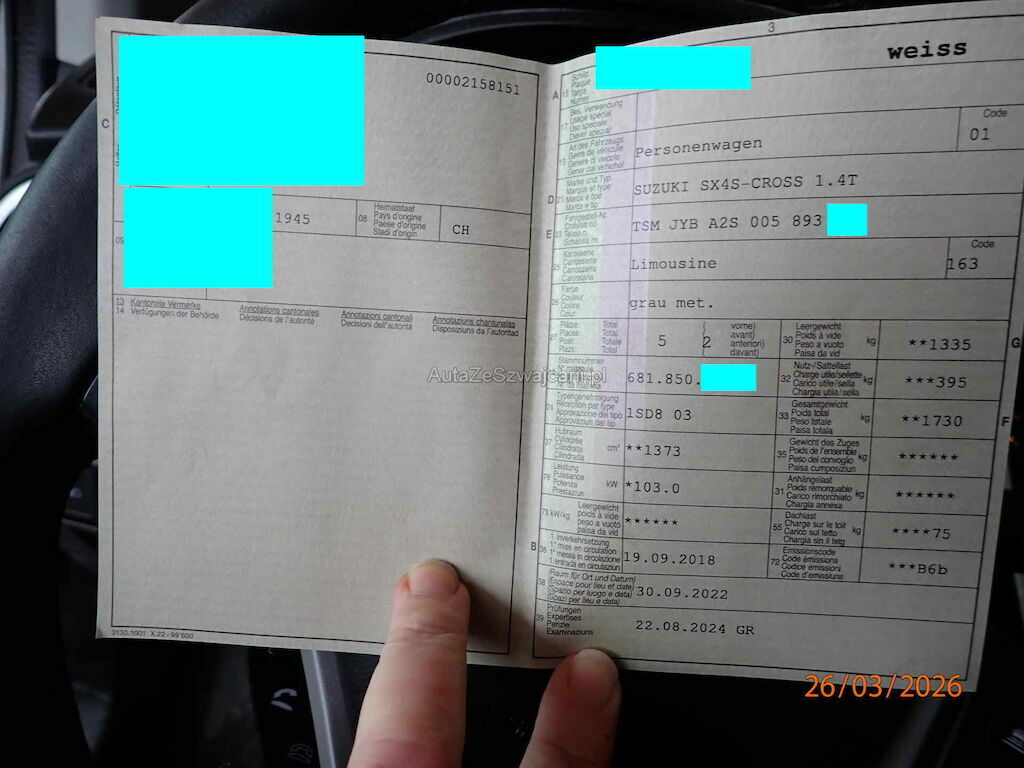 00002158151
C
1945
08 Heimatstaat
Pays d'origine
Paese d'origine
Stadi d'origin
CH
09
13 Kantonale Vermerke
14 Verfügungen der Behörde
Annotations cantonales
Décisions de l'autorité
Annotazioni cantonali
Decisioni dell'autorità
Annotaziuns chantunalas
Disposiziuns da l'autoritad
3100.1001 X.22-99'600
3
weiss
A 15 Schild
Plaque
Targa
Numer
17 Bes. Verwendung
Usage spécial
Uso speciale
Diever spezial
19 Art des Fahrzeugs
Genre de véhicule
Genere di veicolo
Gener dal vehichel
Personenwagen
Code
01
D 21 Marke und Typ
Marque et type
Marca e tipo
Marca e tip
SUZUKI SX4S-CROSS 1.4T
E 23 Fahrgestell-Nr.
Châssis no
Telaio n.
Schassis nr.
TSM JYB A2S 005 893
25 Karosserie
Carrosserie
Carrozzeria
Carossaria
Limousine
Code
163
26 Farbe
Couleur
Colore
Colur
grau met.
27 Plätze: Total
Places: Total
Posti: Totale
Plazs: Total
5
2
( vorne)
avant)
anteriori)
davant)
30 Leergewicht
Poids à vide
Peso a vuoto
Paisa da vid
kg
**1335
G
Stammnummer
681.850.
32 Nutz-/Sattellast
Charge utile/sellette
Carico utile/sella
Chargia utila/sella
kg
***395
24 Typengenehmigung
Réception par type
Approvazione del tipo
Approvaziun dal tip
1SD8 03
33 Gesamtgewicht
Poids total
Peso totale
Paisa totala
kg
**1730
F
37 Hubraum
Cylindrée
Cilindrata
Cilindrada
cm³
**1373
35 Gewicht des Zuges
Poids de l'ensemble
Peso del convoglio
Paisa cumposiziun
kg
******
76 Leistung
Puissance
Potenza
Prestaziun
kW
*103.0
31 Anhängelast
Poids remorquable
Carico rimorchiato
Chargia annexa
kg
******
78 kW/kg
Leergewicht
poids à vide
peso a vuoto
paisa da vid
******
55 Dachlast
Charge sur le toit
Carico sul tetto
Chargia sin il tetg
kg
****75
B 36 1. Inverkehrsetzung
1re mise en circulation
1a messa in circolazione
1. entrada en circulaziun
19.09.2018
72 Emissionscode
Code émissions
Codice emissioni
Code d'emissiuns
***B6b
38 (Raum für Ort und Datum)
(Espace pour lieu et date)
(Spazio per luogo e data)
(Spazi per lieu e data)
30.09.2022
39 Prüfungen
Expertises
Perizie
Examinaziuns
22.08.2024 GR
AutaZeSzwajcarii.pl
26/03/2026